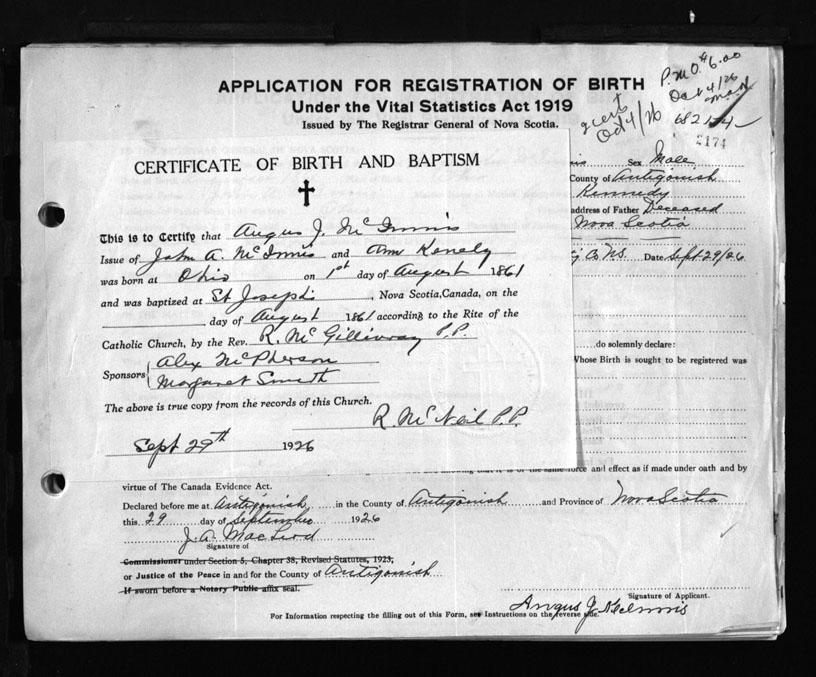 APPLICATION FOR REGISTRATION OF BIRTH
Under the Vital Statistics Act 1919
Issued by The Registrar General of Nova Scotia.
P.M.O. $6.00
Oct 4/26
Oct 4/26
68214
2174
CERTIFICATE OF BIRTH AND BAPTISM
This is to Certify that Angus J. McInnis
Issue of John A. McInnis and Ann Kenedy
was born at Ohio on 1st day of August 1861
and was baptized at St Joseph's, Nova Scotia, Canada, on the
day of August 1861 according to the Rite of the
Catholic Church, by the Rev. R. McGillivray P.P.
Sponsors Alex McPherson
Margaret Smith
The above is true copy from the records of this Church.
R. McNeil P.P.
Sept 29th 1926
Sex Male
County of Antigonish
Kennedy
address of Father Deceased
Nova Scotia
Co N.S. Date Sept 29/26
do solemnly declare:
Whose Birth is sought to be registered was
force and effect as if made under oath and by
virtue of The Canada Evidence Act.
Declared before me at Antigonish in the County of Antigonish and Province of Nova Scotia
this 29 day of September 1926
J.A. MacLeod
Signature of
Commissioner under Section 5, Chapter 38, Revised Statutes, 1923,
or Justice of the Peace in and for the County of Antigonish
If sworn before a Notary Public affix seal.
Signature of Applicant.
Angus J. McInnis
For Information respecting the filling out of this Form, see Instructions on the reverse side.